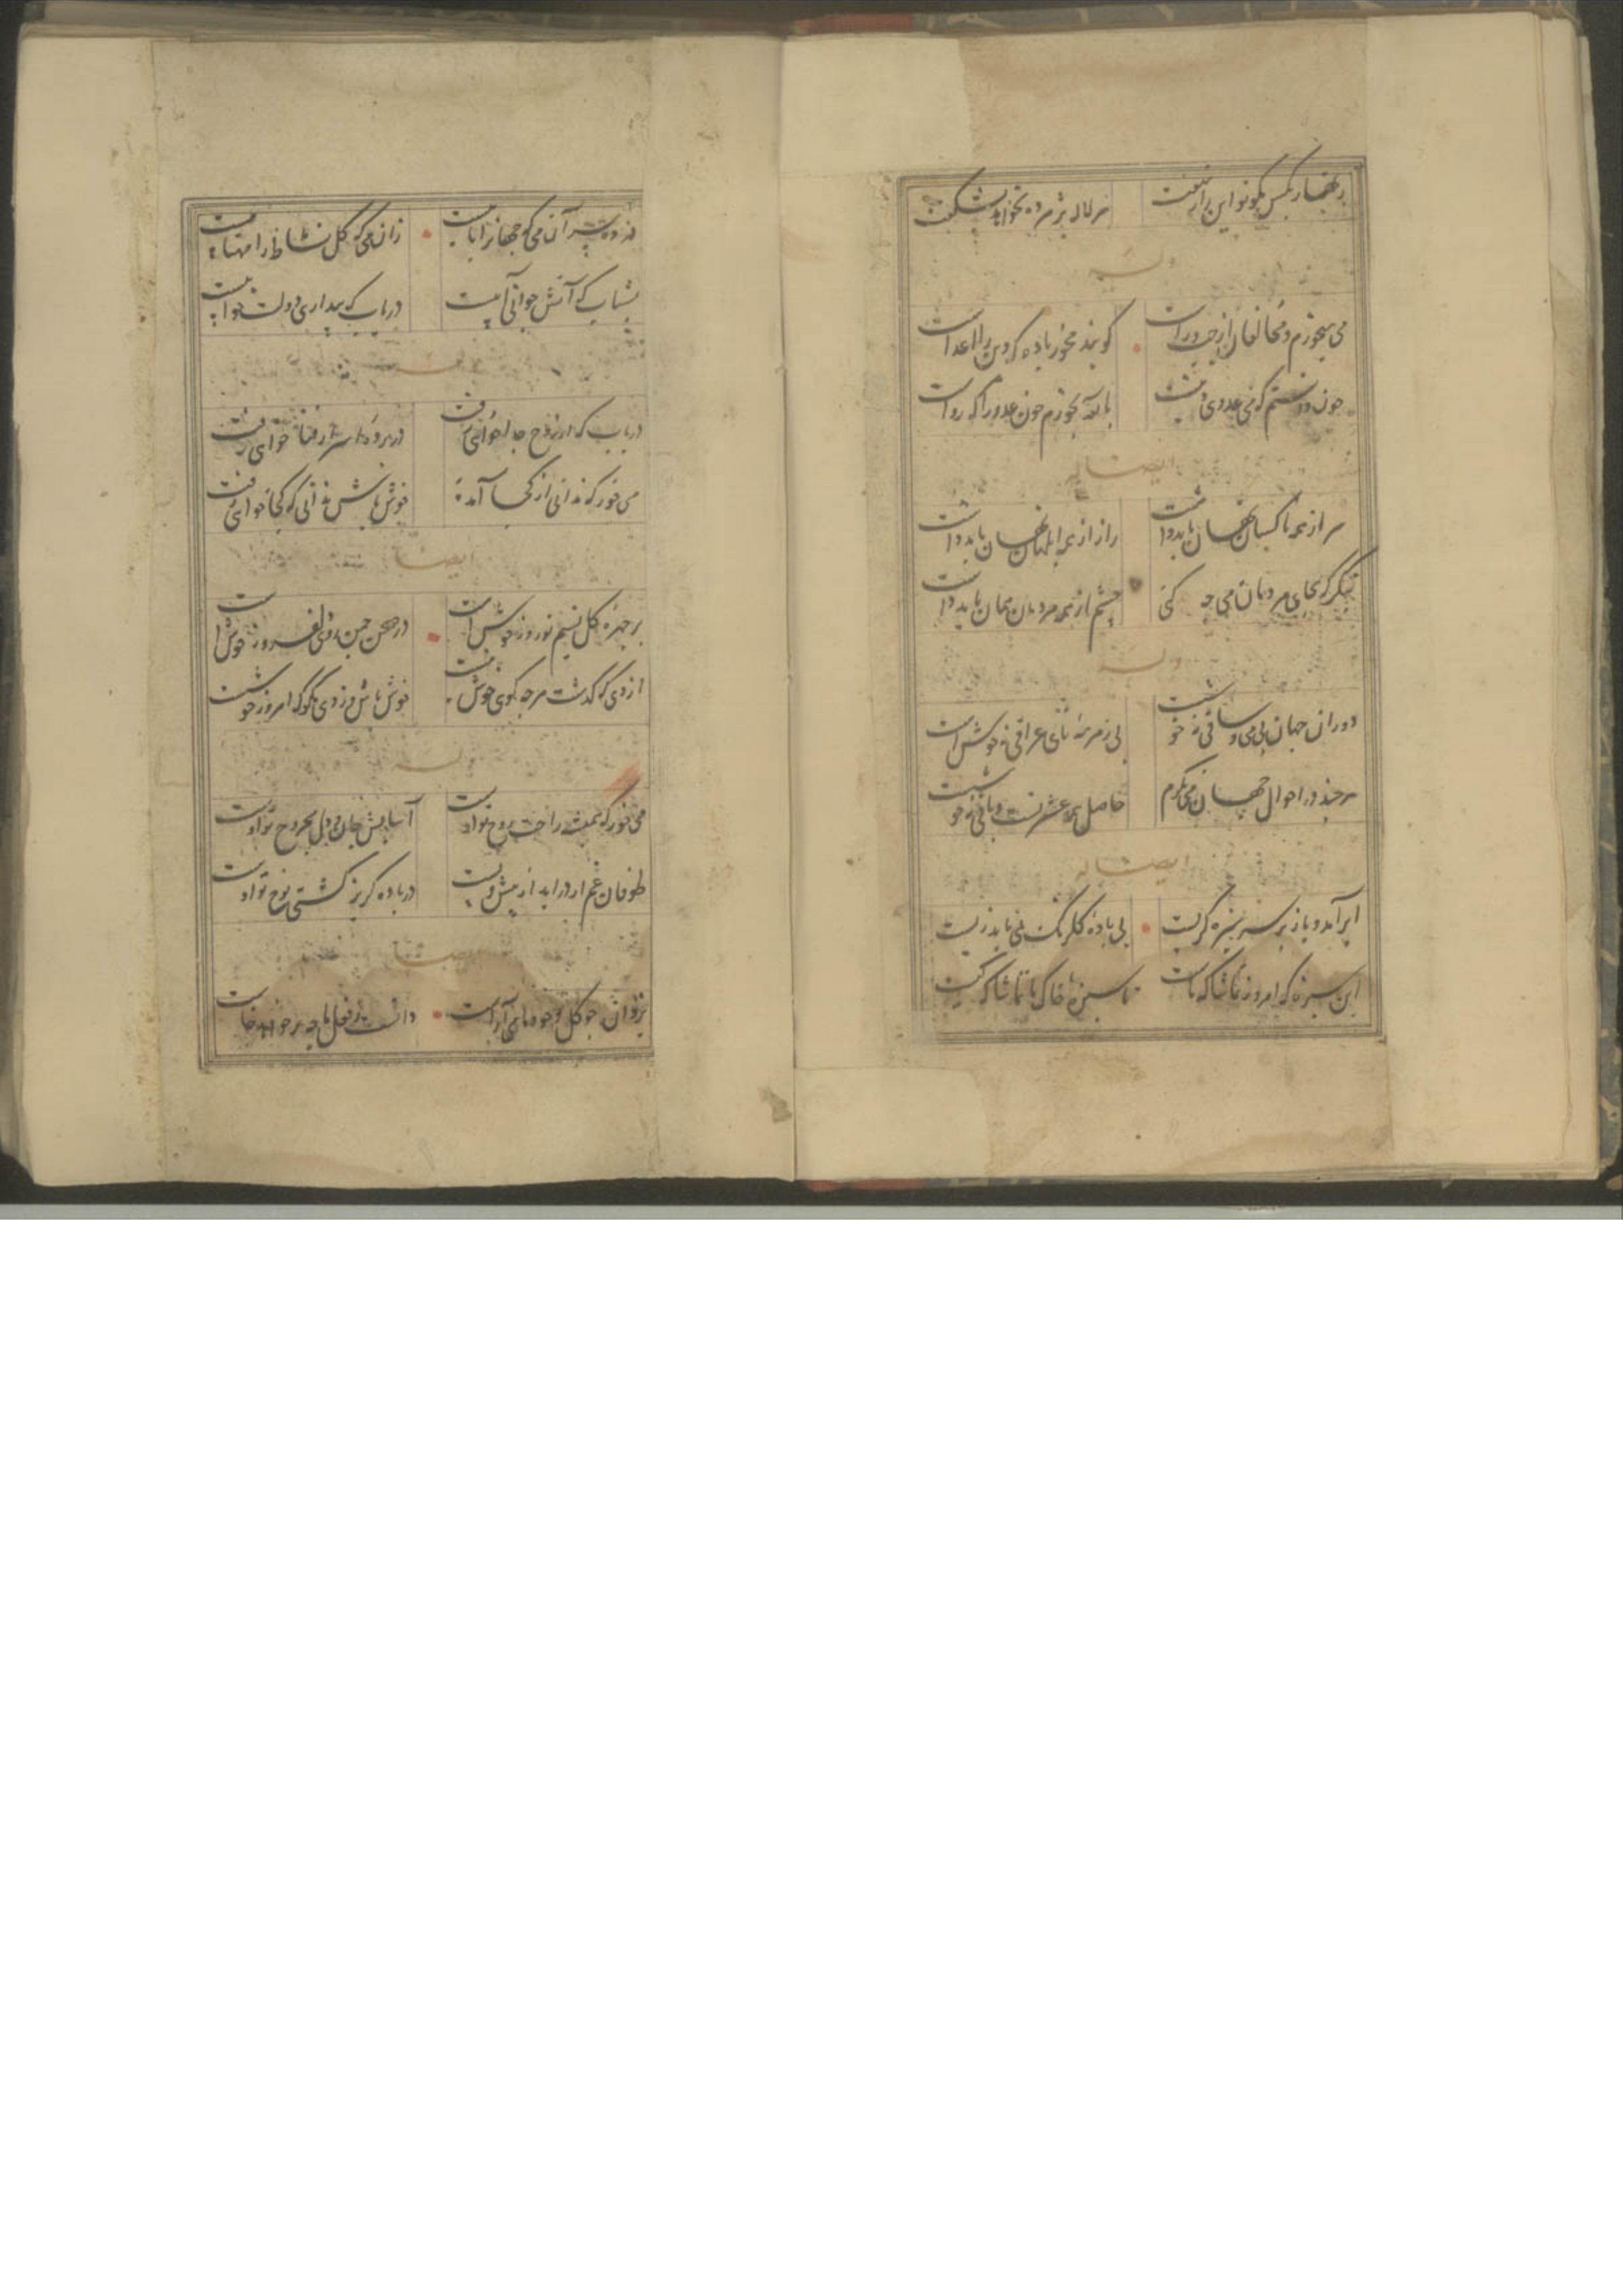 زنهار بکس مگو تو این راز نهفت
هر لاله پژمرده نخواهد بشکفت
وله
می میخورم و مخالفان از چپ و راست
گویند مخور باده که دین را اعداست
چون دانستم که می عدوی دینست
بالله بخورم خون عدو را که رواست
ایضا له
سر از همه ناکسان نهان باید داشت
راز از همه ابلهان نهان باید داشت
بنگر که بجای مردمان می چه کنی
چشم از همه مردمان همان باید داشت
وله
دوران جهان بی می و ساقی نه خوشست
بی زمزمه نای عراقی نه خوش است
هر چند در احوال جهان می نگرم
حاصل همه عشرتست و باقی نه خوشست
ایضا له
ابر آمد و باز بر سر سبزه گریست
بی باده گلرنگ نمی باید زیست
این سبزه که امروز تماشاگه ماست
تا سبزه خاک ما تماشاگه کیست
در ده پسر آن می که جهانرا تابیست
زان می که گل نشاط را مهتابیست
بشتاب که آتش جوانی آبیست
دریاب که بیداری دولت خوابیست
وله
دریاب که از روح جدا خواهی رفت
در پرده اسرار فنا خواهی رفت
می خور که ندانی از کجا آمده
خوش باش ندانی که کجا خواهی رفت
ایضا
بر چهره گل نسیم نوروز خوش است
در صحن چمن روی دلفروز خوش است
از دی که گذشت هر چه گوی خوش نیست
خوش باش و ز دی مگو که امروز خوشست
وله
می خور که همیشه راحت روح تو اوست
آسایش جان و دل مجروح تو اوست
طوفان غم ار در آید از پیش و پست
در باده گریز کشتی نوح تو اوست
ایضا
یزدان چو گل وجود ما می آراست
دانست ز فعل ما چه بر خواهد خاست